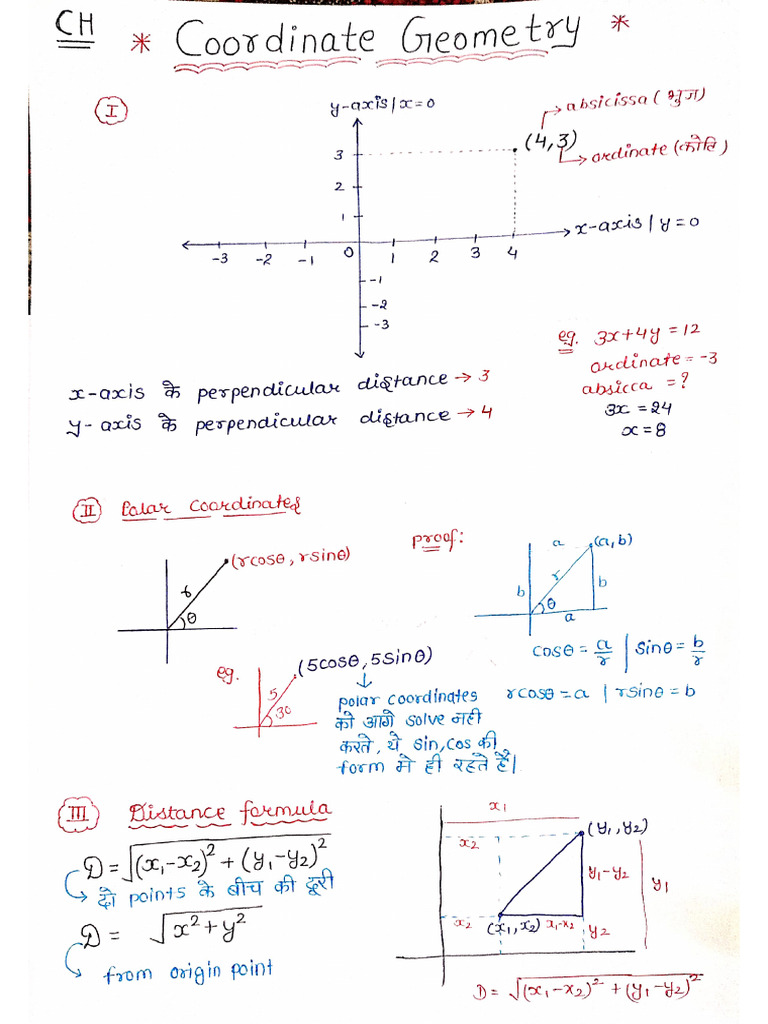 CH * Coordinate Geometry *
I
y-axis | x=0
absicissa (भुज)
(4,3)
ordinate (कोटि)
3
2
1
x-axis | y=0
-3 -2 -1 0 1 2 3 4
-1
-2
-3
eg. 3x+4y=12
ordinate = -3
absicca = ?
3x=24
x=8
x-axis के perpendicular distance → 3
y-axis के perpendicular distance → 4
II Polar Coordinates
(rcosθ, rsinθ)
r
θ
proof:
a (a,b)
b r b
θ
a
cosθ = a/r | sinθ = b/r
rcosθ=a | rsinθ=b
eg. (5cosθ, 5sinθ)
5
30
polar coordinates
को आगे solve नही
करते, ये sin, cos की
form मे ही रहते हैं।
III Distance formula
D=√(x₁-x₂)²+(y₁-y₂)²
दो points के बीच की दूरी
D= √x²+y²
from origin point
x₁
x₂ (y₁,y₂)
y₁-y₂ y₁
x₂ (x₁,x₂) x₁-x₂ y₂
D=√(x₁-x₂)²+(y₁-y₂)²